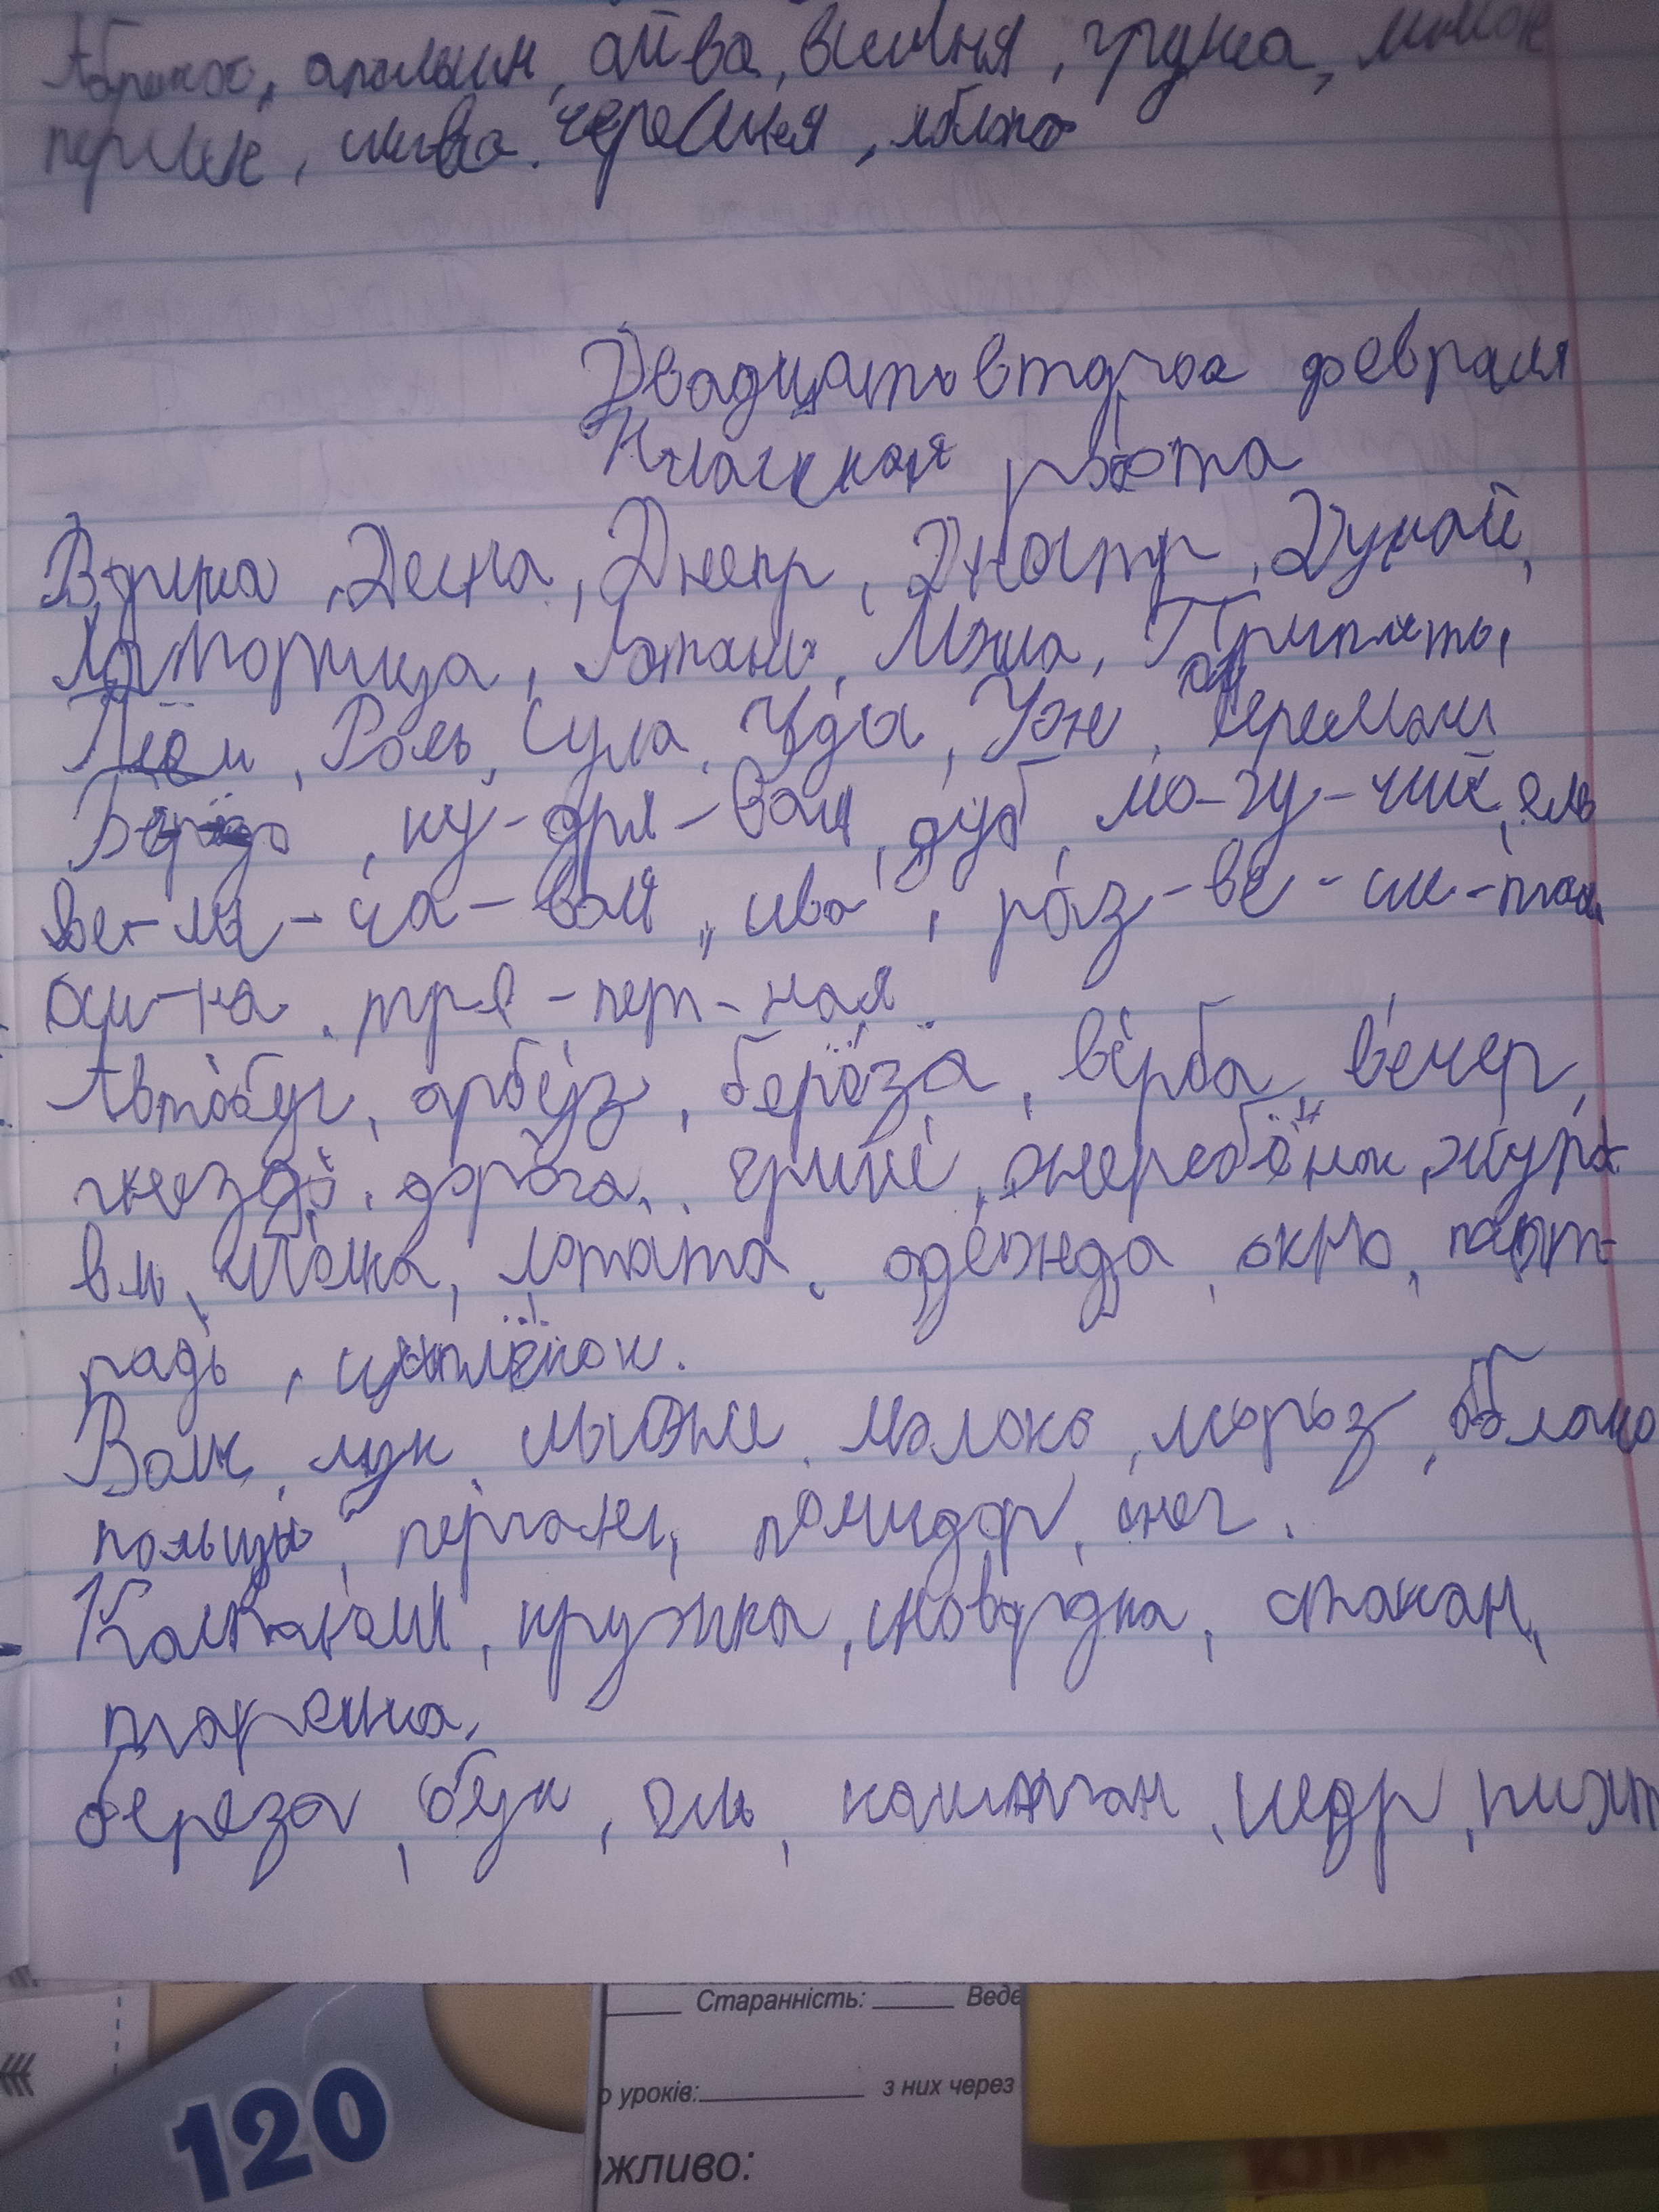 Абрикос, апельсин, айва, вишня, груша, лимон
персик, слива, черешня, яблоко
Двадцать второе февраля
Классная работа
Ворскла, Десна, Днепр, Днестр, Дунай,
Латорица, Мжа, Припять,
Псёл, Рось, Сула, Уды, Уж, Черемош
Берёза, ку-дря-вая, дуб, мо-гу-чий, ель
ве-ли-ча-вая, ива, раз-ве-си-тая
оси-на, тре-пет-ная.
Автобус, арбуз, берёза, верба, вечер,
гнездо, дорога, жеребёнок, жура-
вль, лопата, одежда, окно,
радь, цыплёнок.
Волк, лук, молоко, мороз, облако
пальцы, перчаткы, помидор, снег.
кружка, сковородка, стакан,
тарелка.
береза, бук, ель, каштан, кедр, пихт
Старанність: Веде
о уроків: з них через
жливо:
120